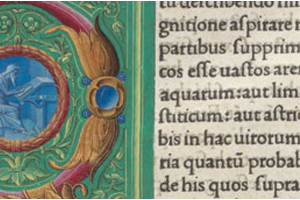 tu describendo im
gnitione aſpirare r
partibus ſupprim
cos eſſe uaſtos aren
aquarum:aut lim
ſticum: aut aſtric
bis in hac uirorum
ria quantũ probab
de his quos ſupra